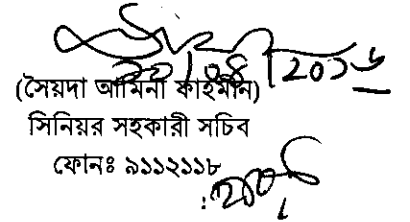 ২০/০৪/২০১৬
(সৈয়দা আমিনা ফাহমীন)
সিনিয়র সহকারী সচিব
ফোনঃ ৯১১২১১৮